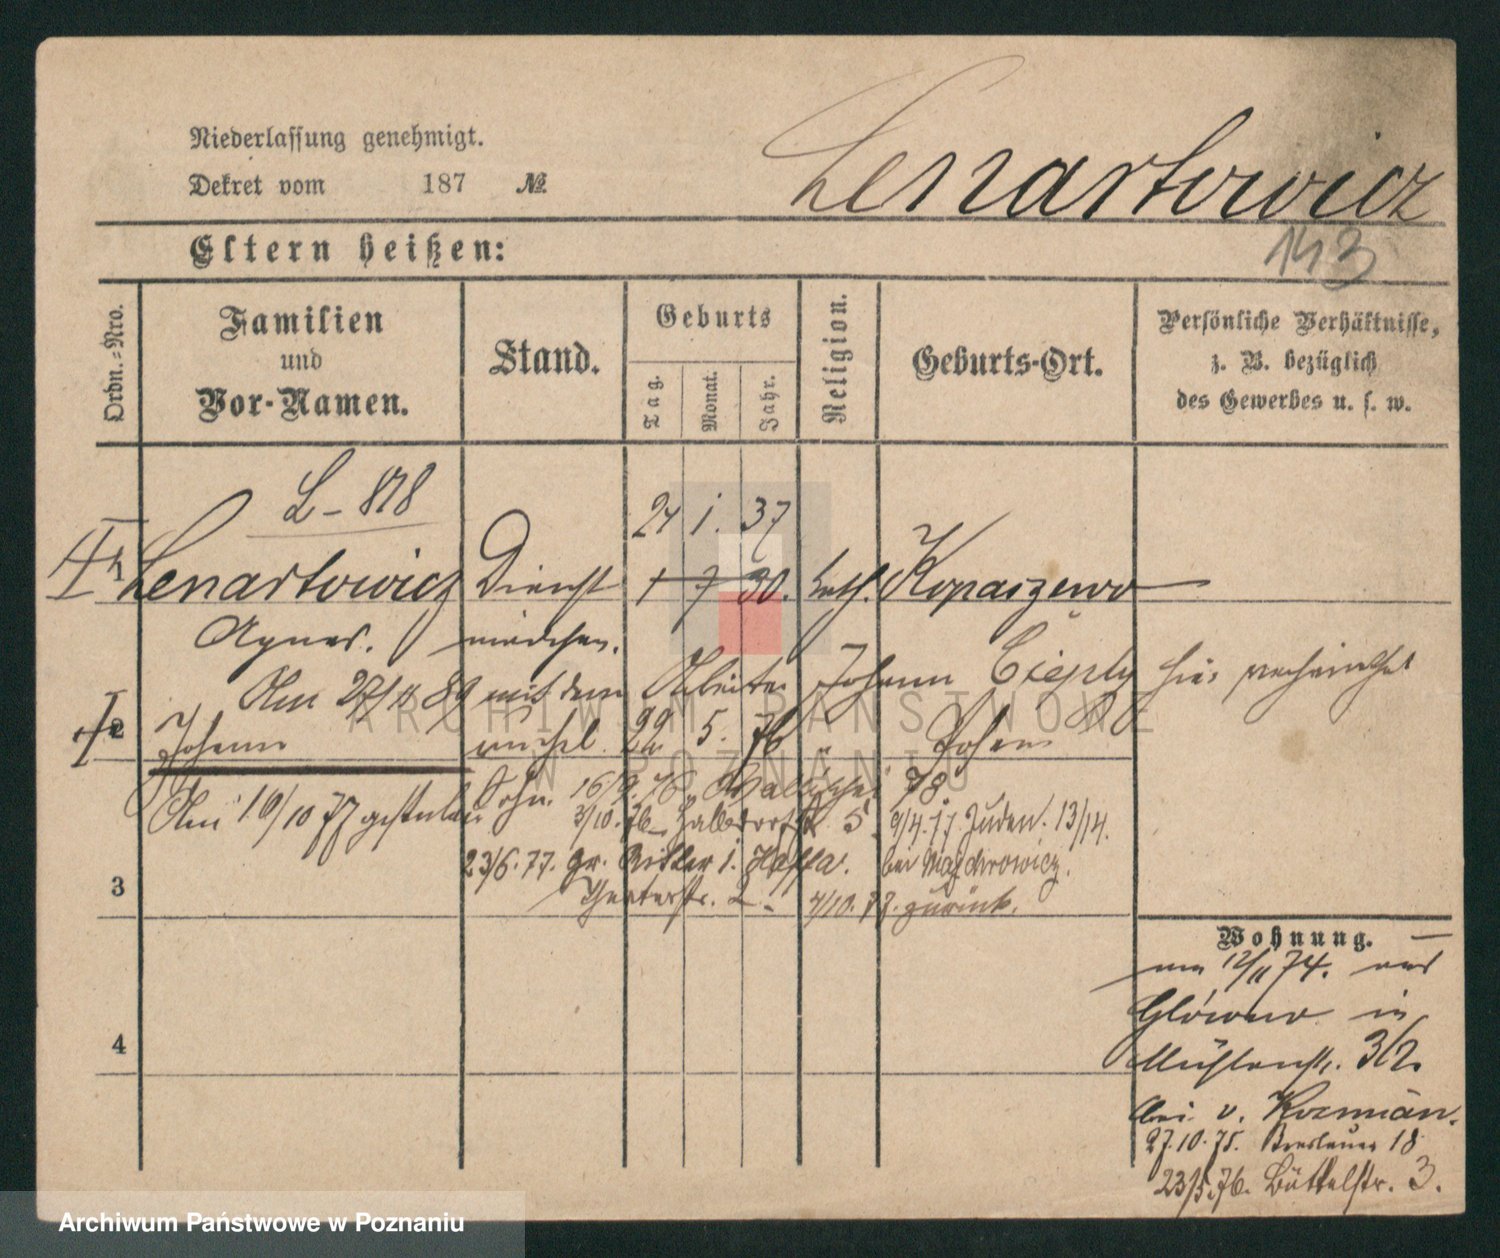 Niederlassung genehmigt.
Dekret vom 187 №
Lenartowicz
Eltern heißen:
143
Ordn.-Nro.
Familien und Vor-Namen.
Stand.
Geburts
Tag.
Monat.
Jahr.
Religion.
Geburts-Ort.
Persönliche Verhältnisse, z. B. bezüglich des Gewerbes u. s. w.
L – 878
24 1. 37
1 Lenartowicz Dienst 1 7 30. kath. Kopaszewo
Agnes. mädchen.
Am 27/11 89 mit dem Arbeiter Johann Cieply hier verheirathet
2 Johann unehel. 22 5. 76 Posen
Am 10/10 77 gestorben Sohn. 16/9. 76. Wallischei 78.
3/10. 76 Halbdorfstr 5. 9/4. 77. Juden. 13/14.
23/6. 77. Gr. Ritter i. bei Majchrowicz.
3 Theaterstr. 2. 4/10. 77. zurück.
Wohnung.
am 12/11 74. aus
Główno in
4 Mühlenstr. 3/2.
bei v. Kozmian.
27.10.75. Breslauer 18
23/5.76. Büttelstr. 3.
ARCHIWUM PAŃSTWOWE
W POZNANIU
Archiwum Państwowe w Poznaniu